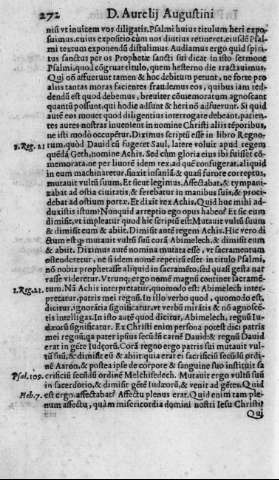 272 D. Aurelij Augustini
nisi vt inuicem vos diligatis, Psalmi huius titulum heri expo-
suimus, cuius expositio cùm nos diutius retineret, eiusdē Psal-
mi textum exponendū distulimus. Audiamus ergo quid spiri-
tus sanctus per os Prophetæ sancti sui dicat in isto sermone
Psalmi, quod cōgruat titulo, quem hesterno die tractauimus.
Qui nō affuerunt tamen & hoc debitum petunt, ne forte pro
aliis tantas moras facientes fraudemus eos, quibus iam
dendū est quod debemus, breuiter cōmemoratum agnoscant
quantū possunt, qui hodie adsunt & heri nō adfuerunt. Si quid
autē eos mouet quod diligentius interrogare debeant, patien-
tes aures nostras inuenient in nomine Christi aliis téporibus,
ne isti modo occupētur. Diximus scriptū esse in libro Regno-
1. Reg. 21 rum, quòd Dauid cū fugeret Saul, latere voluit apud regem
quēdā Geth, nomine Achis. Sed cùm gloria eius ibi fuisset cō-
memorata, ne per liuorē idem rex, ad quē confugerat, aliquid
in eum machinaretur, finxit insaniā, & quasi furore correptus,
mutauit vultū suum. Et sicut legimus, Affectabat, & tympani-
zabat ad ostia ciuitatis, & ferebatur in manibus suis, & proci-
debat ad ostium portæ. Et dixit rex Achis, Quid huc mihi ad-
duxistis istum? Nunquid arreptio ego opus habeo? Et sic eum
dimisit, vt impleatur quod hic est, Mutauit vultum suum, &
dimisit eum & abiit. Dimisit autē regem Achis. Hic verò di-
ctum est quod mutauit vultū suū corā Abimelech, & dimisit eum
& abiit. Diximus autē nomina mutata esse, vt sacramentum
ostenderetur, ne si idem nomē repetitū esset in titulo Psalmi,
nō nobis prophetasse aliquid in sacramēto, sed quasi gesta nar
rasse videretur. Vtrunque ergo nomē magnū continet sacramē-
1. Reg. 21. tum. Nā Achis interpretatur, quomodo est: Abimelech inter-
pretatur, patris mei regnū. In isto verbo quod, quomodo est,
dicitur, ignorātia significatur, vt verbū mirātis & nō agnoscē-
tis intelligas: In isto autē quod dicitur, Abimelech, regnū Iu-
dæorū significatur. Ex Christi enim persona potest dici patris
mei regnū, quia pater ipsius secūdū carnē Dauid: & regnū Dauid
erat in gēte Iudæorū. Corā regno ergo patris sui mutauit vul-
tū suū, & dimisit eū & abiit: quia erat ei sacrificiū secūdū ordi-
nē Aaron, & postea ipse de corpore & sanguine suo instituit sa-
Psal. 109. crificiū secūdū ordinē Melchisedech. Mutauit ergo vultū suū
in sacerdotio, & dimisit gētē Iudæorū, & venit ad gētes. Quid
Heb. 7. est ergo, affectabat? Affectu plenus erat. Quid enim tam ple-
num affectu, quàm misericordia domini nostri Iesu Christi?
Qui